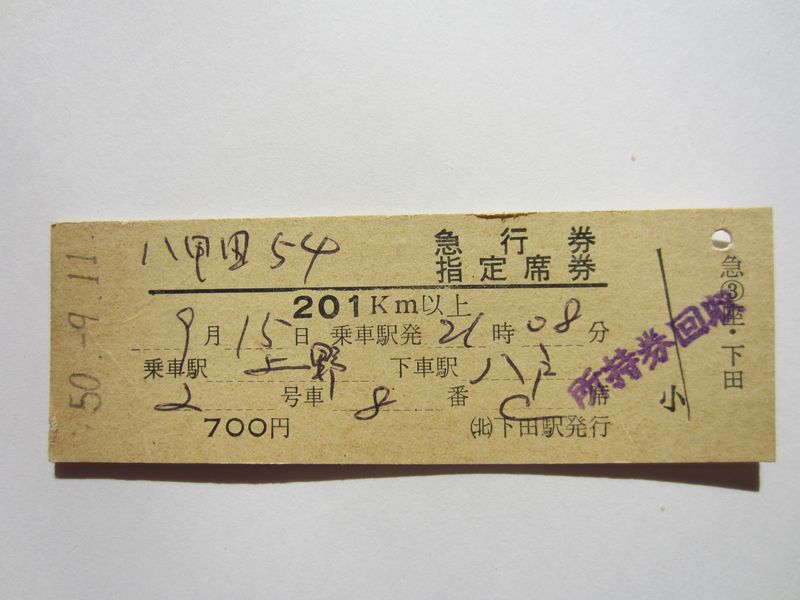 50.-9.11
八甲田54
急行券
指定席券
201Km以上
9月15日 乗車駅発21時08分
乗車駅 上野 下車駅 八戸
2号車8番C席
700円 ㈹下田駅発行
小
急③座・下田
所持券回収